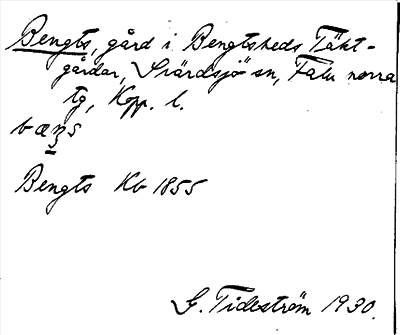 Bengts, gård i Bengtsheds Täkt-
gårdar, Svärdsjö sn, Falu norra
tg, Kopp. l.
Bengts Kb 1855
G. Tideström 1930.